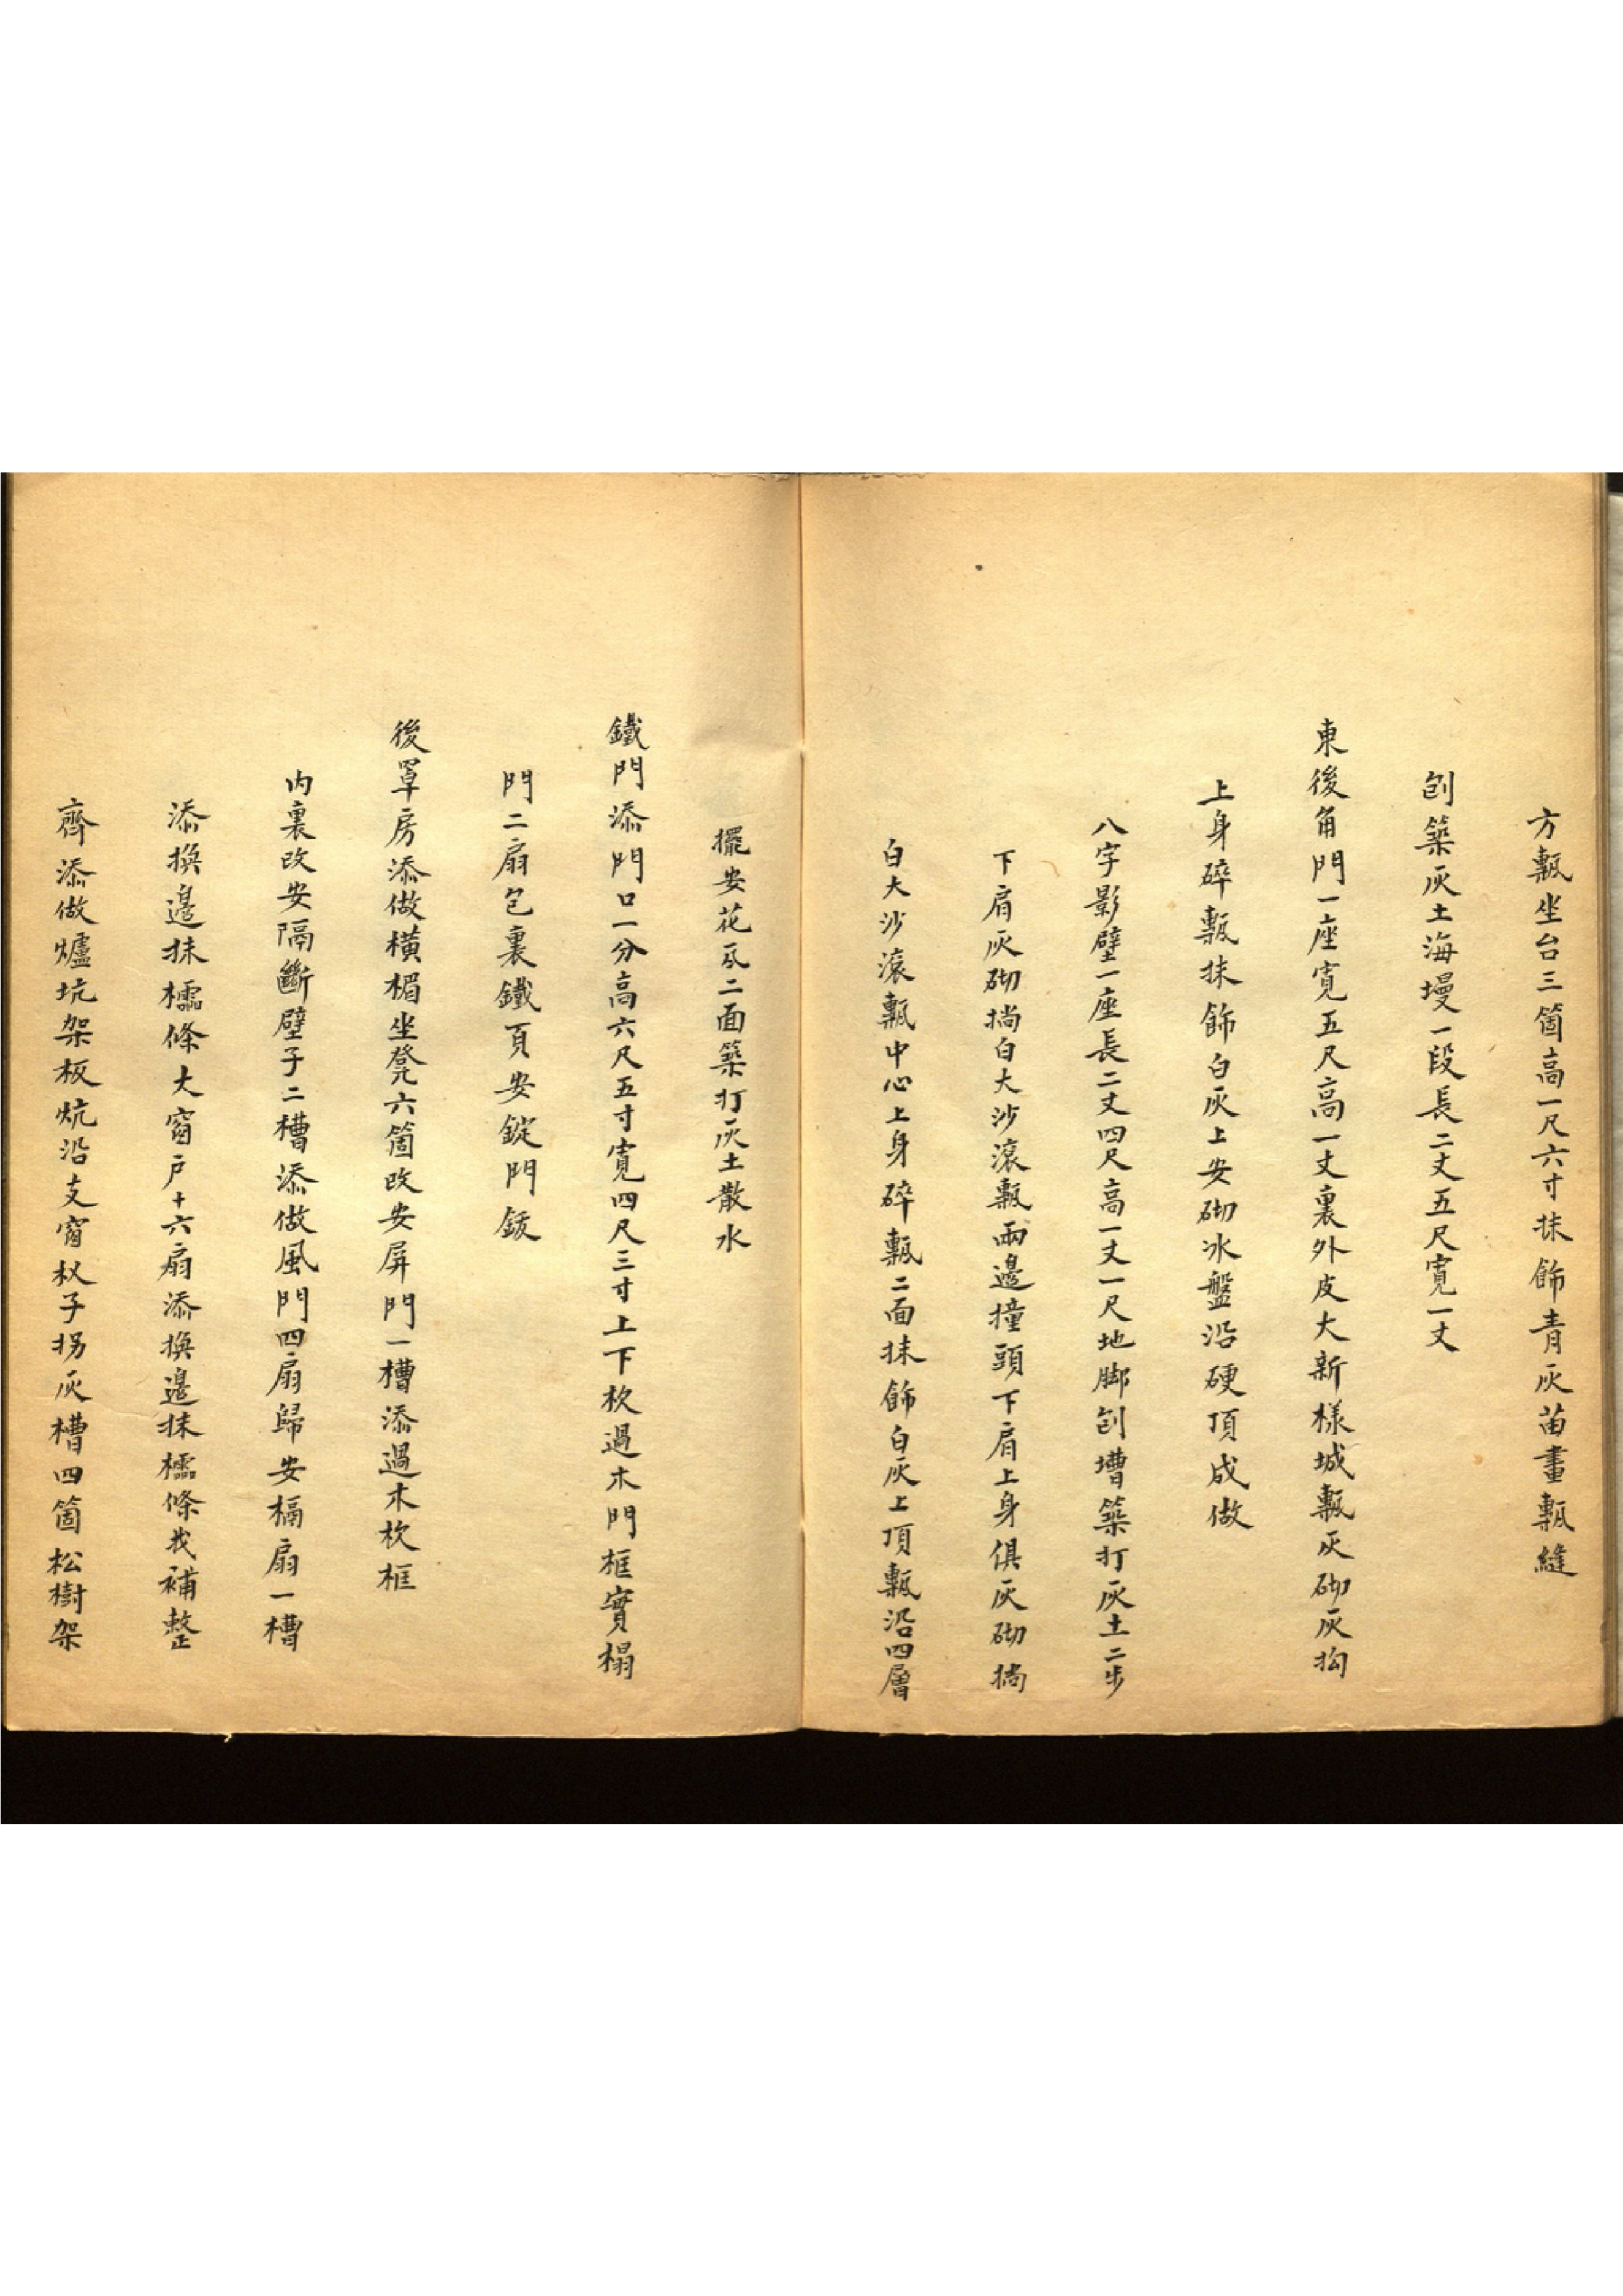 方甎坐台三箇高一尺六寸抹飾青灰苗畫甎縫
刨築灰土海墁一段長二丈五尺寬一丈
東後角門一座寬五尺高一丈裏外皮大新樣城甎灰砌灰抅
上身碎甎抹飾白灰上安砌冰盤沿硬頂成做
八字影壁一座長二丈四尺高一丈一尺地脚刨墁築打灰土二步
下肩灰砌㨪白大沙滾甎兩邊撞頭下肩上身俱灰砌㨪
白大沙滾甎中心上身碎甎二面抹飾白灰上頂甎沿四層
擺安花瓦二面築打灰土散水
鐵門添門口一分高六尺五寸寬四尺三寸上下杴過木門框實榻
門二扇包裹鐵頁安錠門鈸
後罩房添做橫楣坐凳六箇改安屏門一槽添過木杴框
内裏改安隔斷壁子二槽添做風門四扇歸安槅扇一槽
添換邊抹櫺條大窗户十六扇添換邊抹櫺條找補整
齊添做爐坑架板炕沿支窗杈子拐灰槽四箇松樹架